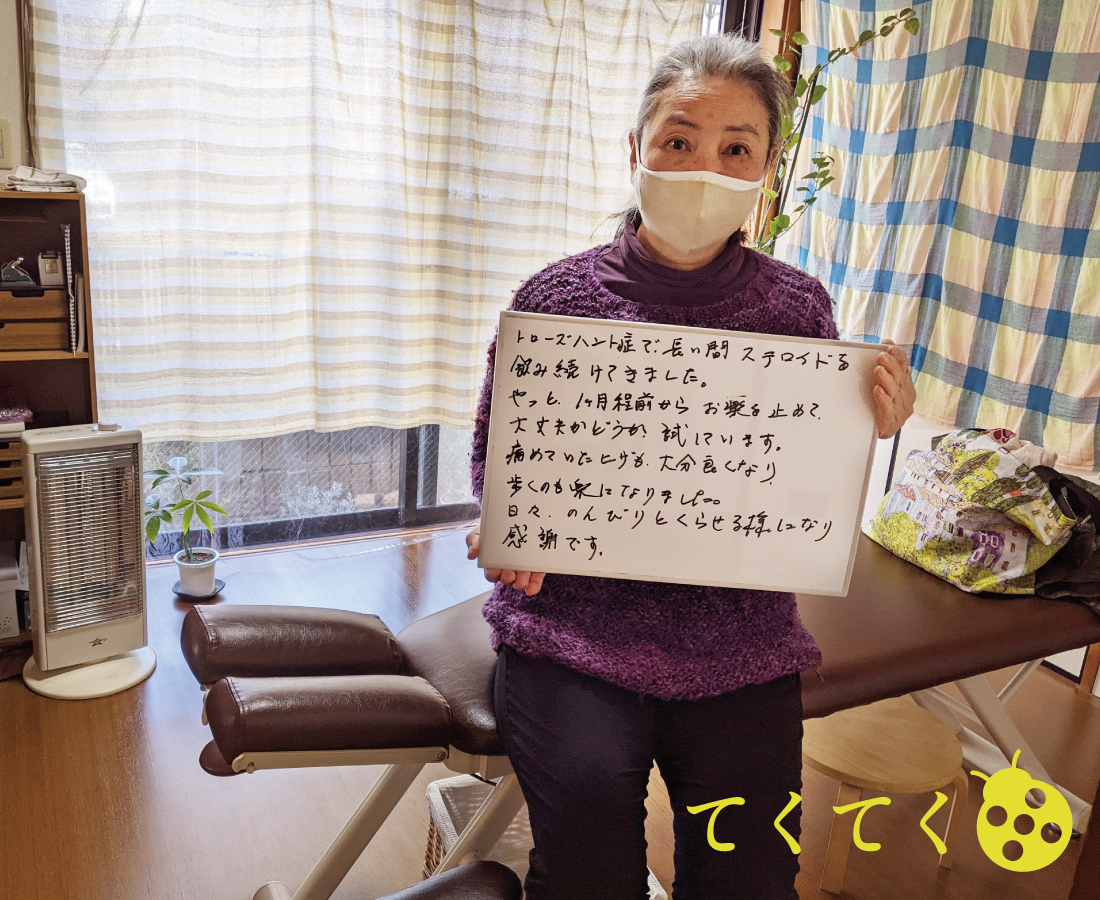 トローズハント症で長い間 ステロイドを
飲み続けてきました。
やっと、1ヶ月程前から お薬を止めて、
大丈夫かどうか 試しています。
痛めていたヒザも、大分良くなり、
歩くのも楽になりました。
日々、のんびりとくらせる様になり
感謝です。
てくてく